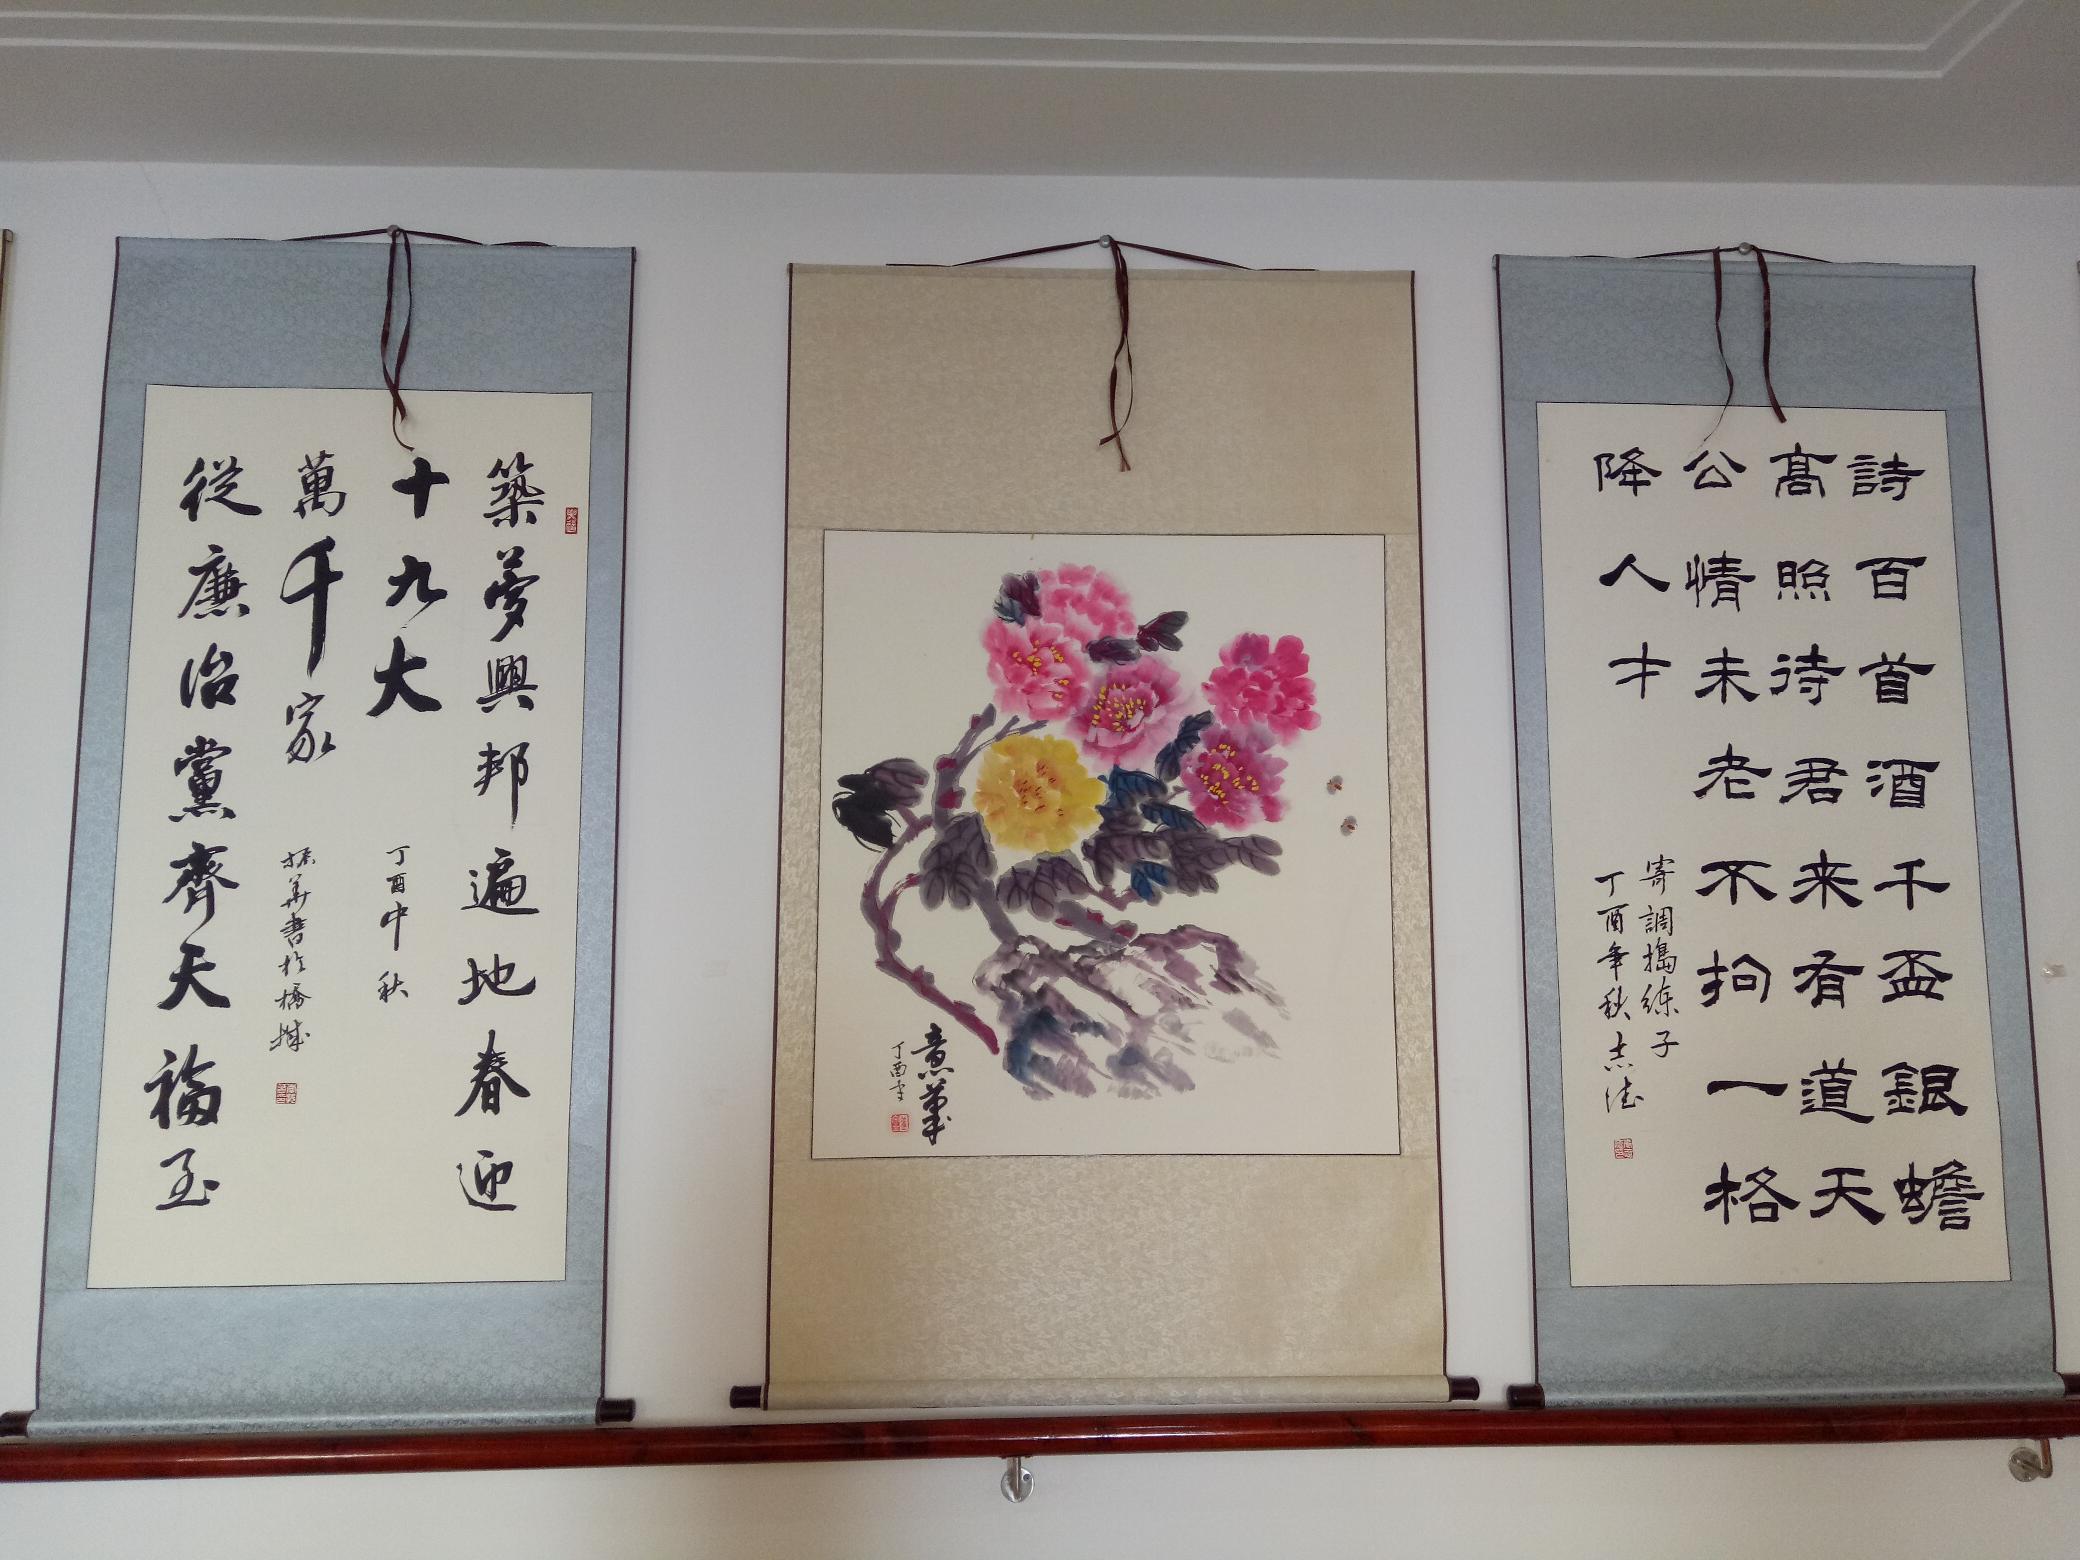 築夢興邦遍地春迎
十九大
丁酉中秋
萬千家
振華書於橋城
從廉治黨齊天福至
意華
丁酉
詩百首酒千盃銀蟾
高照待君来有道天
公情未老不拘一格
降人才
寄調搗練子
丁酉年秋志法